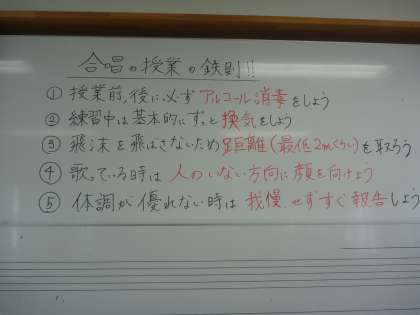 合唱の授業の鉄則!!
① 授業前、後に必ずアルコール消毒をしよう
② 練習中は基本的にずっと換気をしよう
③ 飛沫を飛ばさないため距離(最低2mくらい)を取ろう
④ 歌っている時は人のいない方向に顔を向けよう
⑤ 体調が優れない時は我慢せずすぐ報告しよう